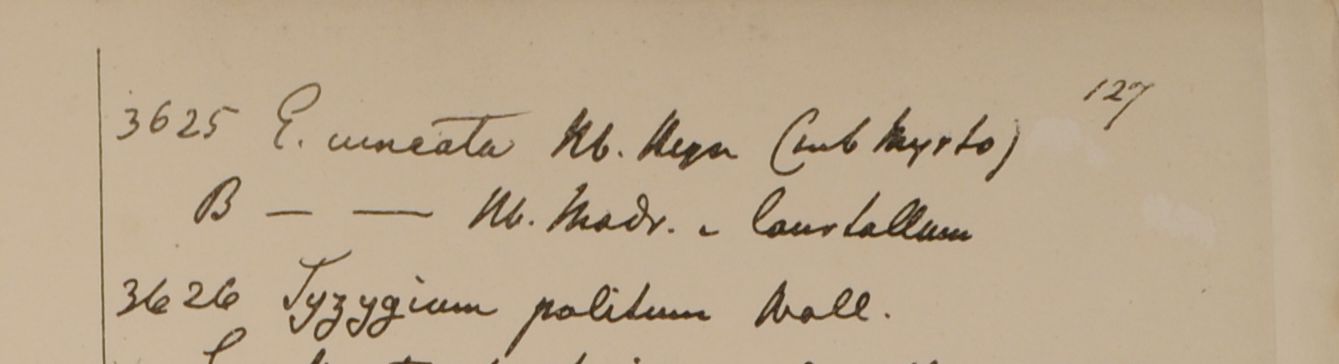 127
3625 E. cuneata Hb. Heyn (sub Myrto)
B — — Hb. Madr.
3626 Syzygium politum Wall.